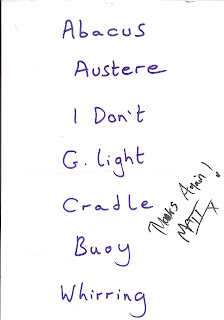 Abacus
Austere
I Don't
G. light
Cradle
Buoy
Whirring
Thanks Again!
MATT X